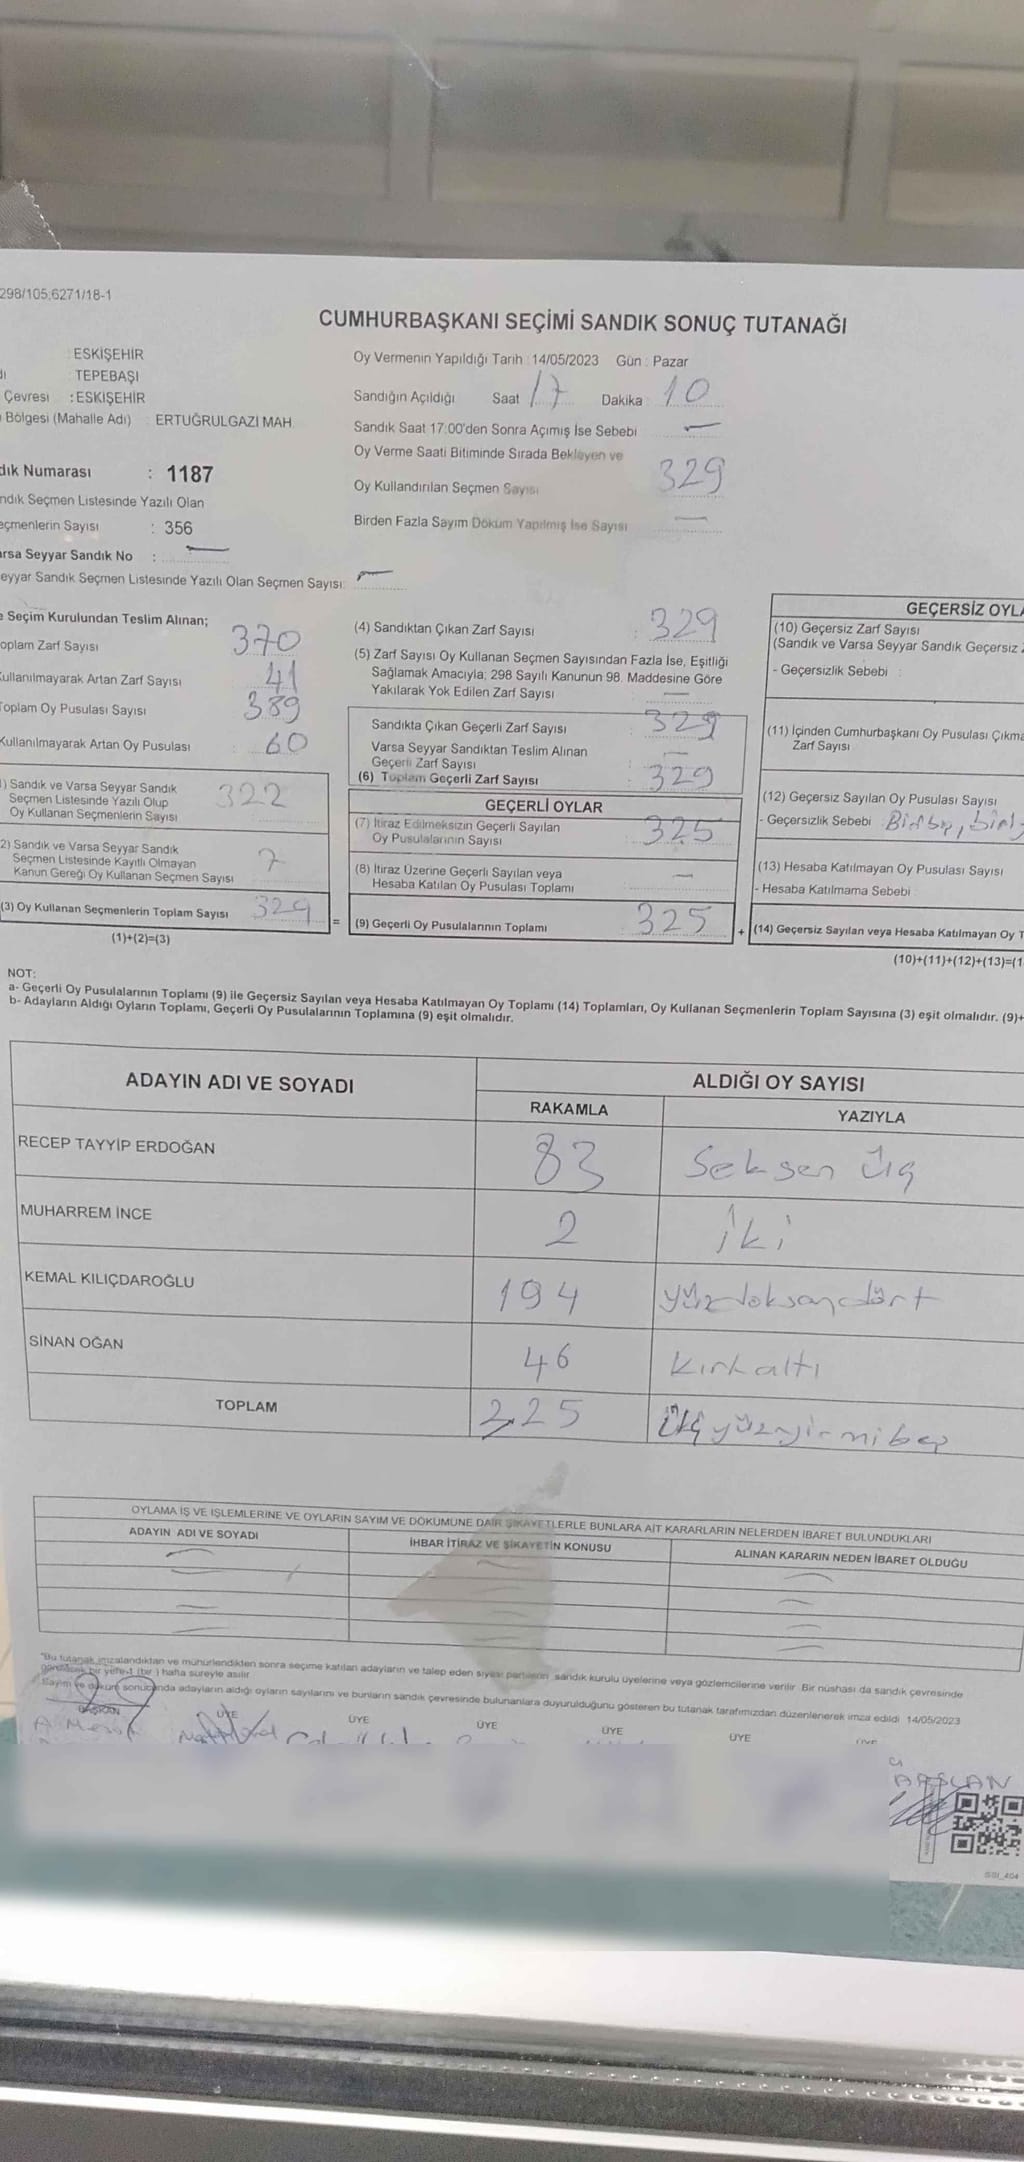 298/105;6271/18-1
CUMHURBAŞKANI SEÇİMİ SANDIK SONUÇ TUTANAĞI
: ESKİŞEHİR
: TEPEBAŞI
Çevresi : ESKİŞEHİR
Bölgesi (Mahalle Adı) : ERTUĞRULGAZİ MAH.
Numarası : 1187
Seçmen Listesinde Yazılı Olan
Sayısı : 356
Seyyar Sandık No : —
Sandık Seçmen Listesinde Yazılı Olan Seçmen Sayısı: —
Oy Vermenin Yapıldığı Tarih : 14/05/2023 Gün : Pazar
Sandığın Açıldığı Saat 17 Dakika 10
Sandık Saat 17:00'den Sonra Açımış İse Sebebi —
Oy Verme Saati Bitiminde Sırada Bekleyen ve
Oy Kullandırılan Seçmen Sayısı 329
Birden Fazla Sayım Döküm Yapılmış İse Sayısı —
Seçim Kurulundan Teslim Alınan;
Zarf Sayısı 370
Artan Zarf Sayısı 41
Oy Pusulası Sayısı 389
Artan Oy Pusulası : 60
) Sandık ve Varsa Seyyar Sandık
Seçmen Listesinde Yazılı Olup
Oy Kullanan Seçmenlerin Sayısı 322
2) Sandık ve Varsa Seyyar Sandık
Seçmen Listesinde Kayıtlı Olmayan
Kanun Gereği Oy Kullanan Seçmen Sayısı 7
(3) Oy Kullanan Seçmenlerin Toplam Sayısı 329
(1)+(2)=(3)
(4) Sandıktan Çıkan Zarf Sayısı : 329
(5) Zarf Sayısı Oy Kullanan Seçmen Sayısından Fazla İse, Eşitliği
Sağlamak Amacıyla; 298 Sayılı Kanunun 98. Maddesine Göre
Yakılarak Yok Edilen Zarf Sayısı —
Sandıkta Çıkan Geçerli Zarf Sayısı 329
Varsa Seyyar Sandıktan Teslim Alınan
Geçerli Zarf Sayısı : —
(6) Toplam Geçerli Zarf Sayısı : 329
GEÇERLİ OYLAR
(7) İtiraz Edilmeksizin Geçerli Sayılan
Oy Pusulalarının Sayısı 325
(8) İtiraz Üzerine Geçerli Sayılan veya
Hesaba Katılan Oy Pusulası Toplamı —
= (9) Geçerli Oy Pusulalarının Toplamı 325
GEÇERSİZ
(10) Geçersiz Zarf Sayısı
(Sandık ve Varsa Seyyar Sandık Geçersiz
- Geçersizlik Sebebi :
(11) İçinden Cumhurbaşkanı Oy Pusulası
Zarf Sayısı
(12) Geçersiz Sayılan Oy Pusulası Sayısı
- Geçersizlik Sebebi
(13) Hesaba Katılmayan Oy Pusulası Sayısı
- Hesaba Katılmama Sebebi
+ (14) Geçersiz Sayılan veya Hesaba Katılmayan Oy
(10)+(11)+(12)+(13)=(1
NOT:
a- Geçerli Oy Pusulalarının Toplamı (9) ile Geçersiz Sayılan veya Hesaba Katılmayan Oy Toplamı (14) Toplamları, Oy Kullanan Seçmenlerin Toplam Sayısına (3) eşit olmalıdır. (9)+
b- Adayların Aldığı Oyların Toplamı, Geçerli Oy Pusulalarının Toplamına (9) eşit olmalıdır.
ADAYIN ADI VE SOYADI
ALDIĞI OY SAYISI
RAKAMLA YAZIYLA
RECEP TAYYİP ERDOĞAN 83 Seksen üç
MUHARREM İNCE 2 iki
KEMAL KILIÇDAROĞLU 194 yüzdoksandört
SİNAN OĞAN 46 kırkaltı
TOPLAM 325 üçyüzyirmibeş
OYLAMA İŞ VE İŞLEMLERİNE VE OYLARIN SAYIM VE DÖKÜMÜNE DAİR ŞİKAYETLERLE BUNLARA AİT KARARLARIN NELERDEN İBARET BULUNDUKLARI
ADAYIN ADI VE SOYADI İHBAR İTİRAZ VE ŞİKAYETİN KONUSU ALINAN KARARIN NEDEN İBARET OLDUĞU
"Bu tutanak imzalandıktan ve mühürlendikten sonra seçime katılan adayların ve talep eden siyasi partilerin sandık kurulu üyelerine veya gözlemcilerine verilir. Bir nüshası da sandık çevresinde
görülecek bir yere 1 (bir) hafta süreyle asılır.
Sayım ve döküm sonucunda adayların aldığı oyların sayılarını ve bunların sandık çevresinde bulunanlara duyurulduğunu gösteren bu tutanak tarafımızdan düzenlenerek imza edildi. 14/05/2023
BAŞKAN ÜYE ÜYE ÜYE ÜYE ÜYE